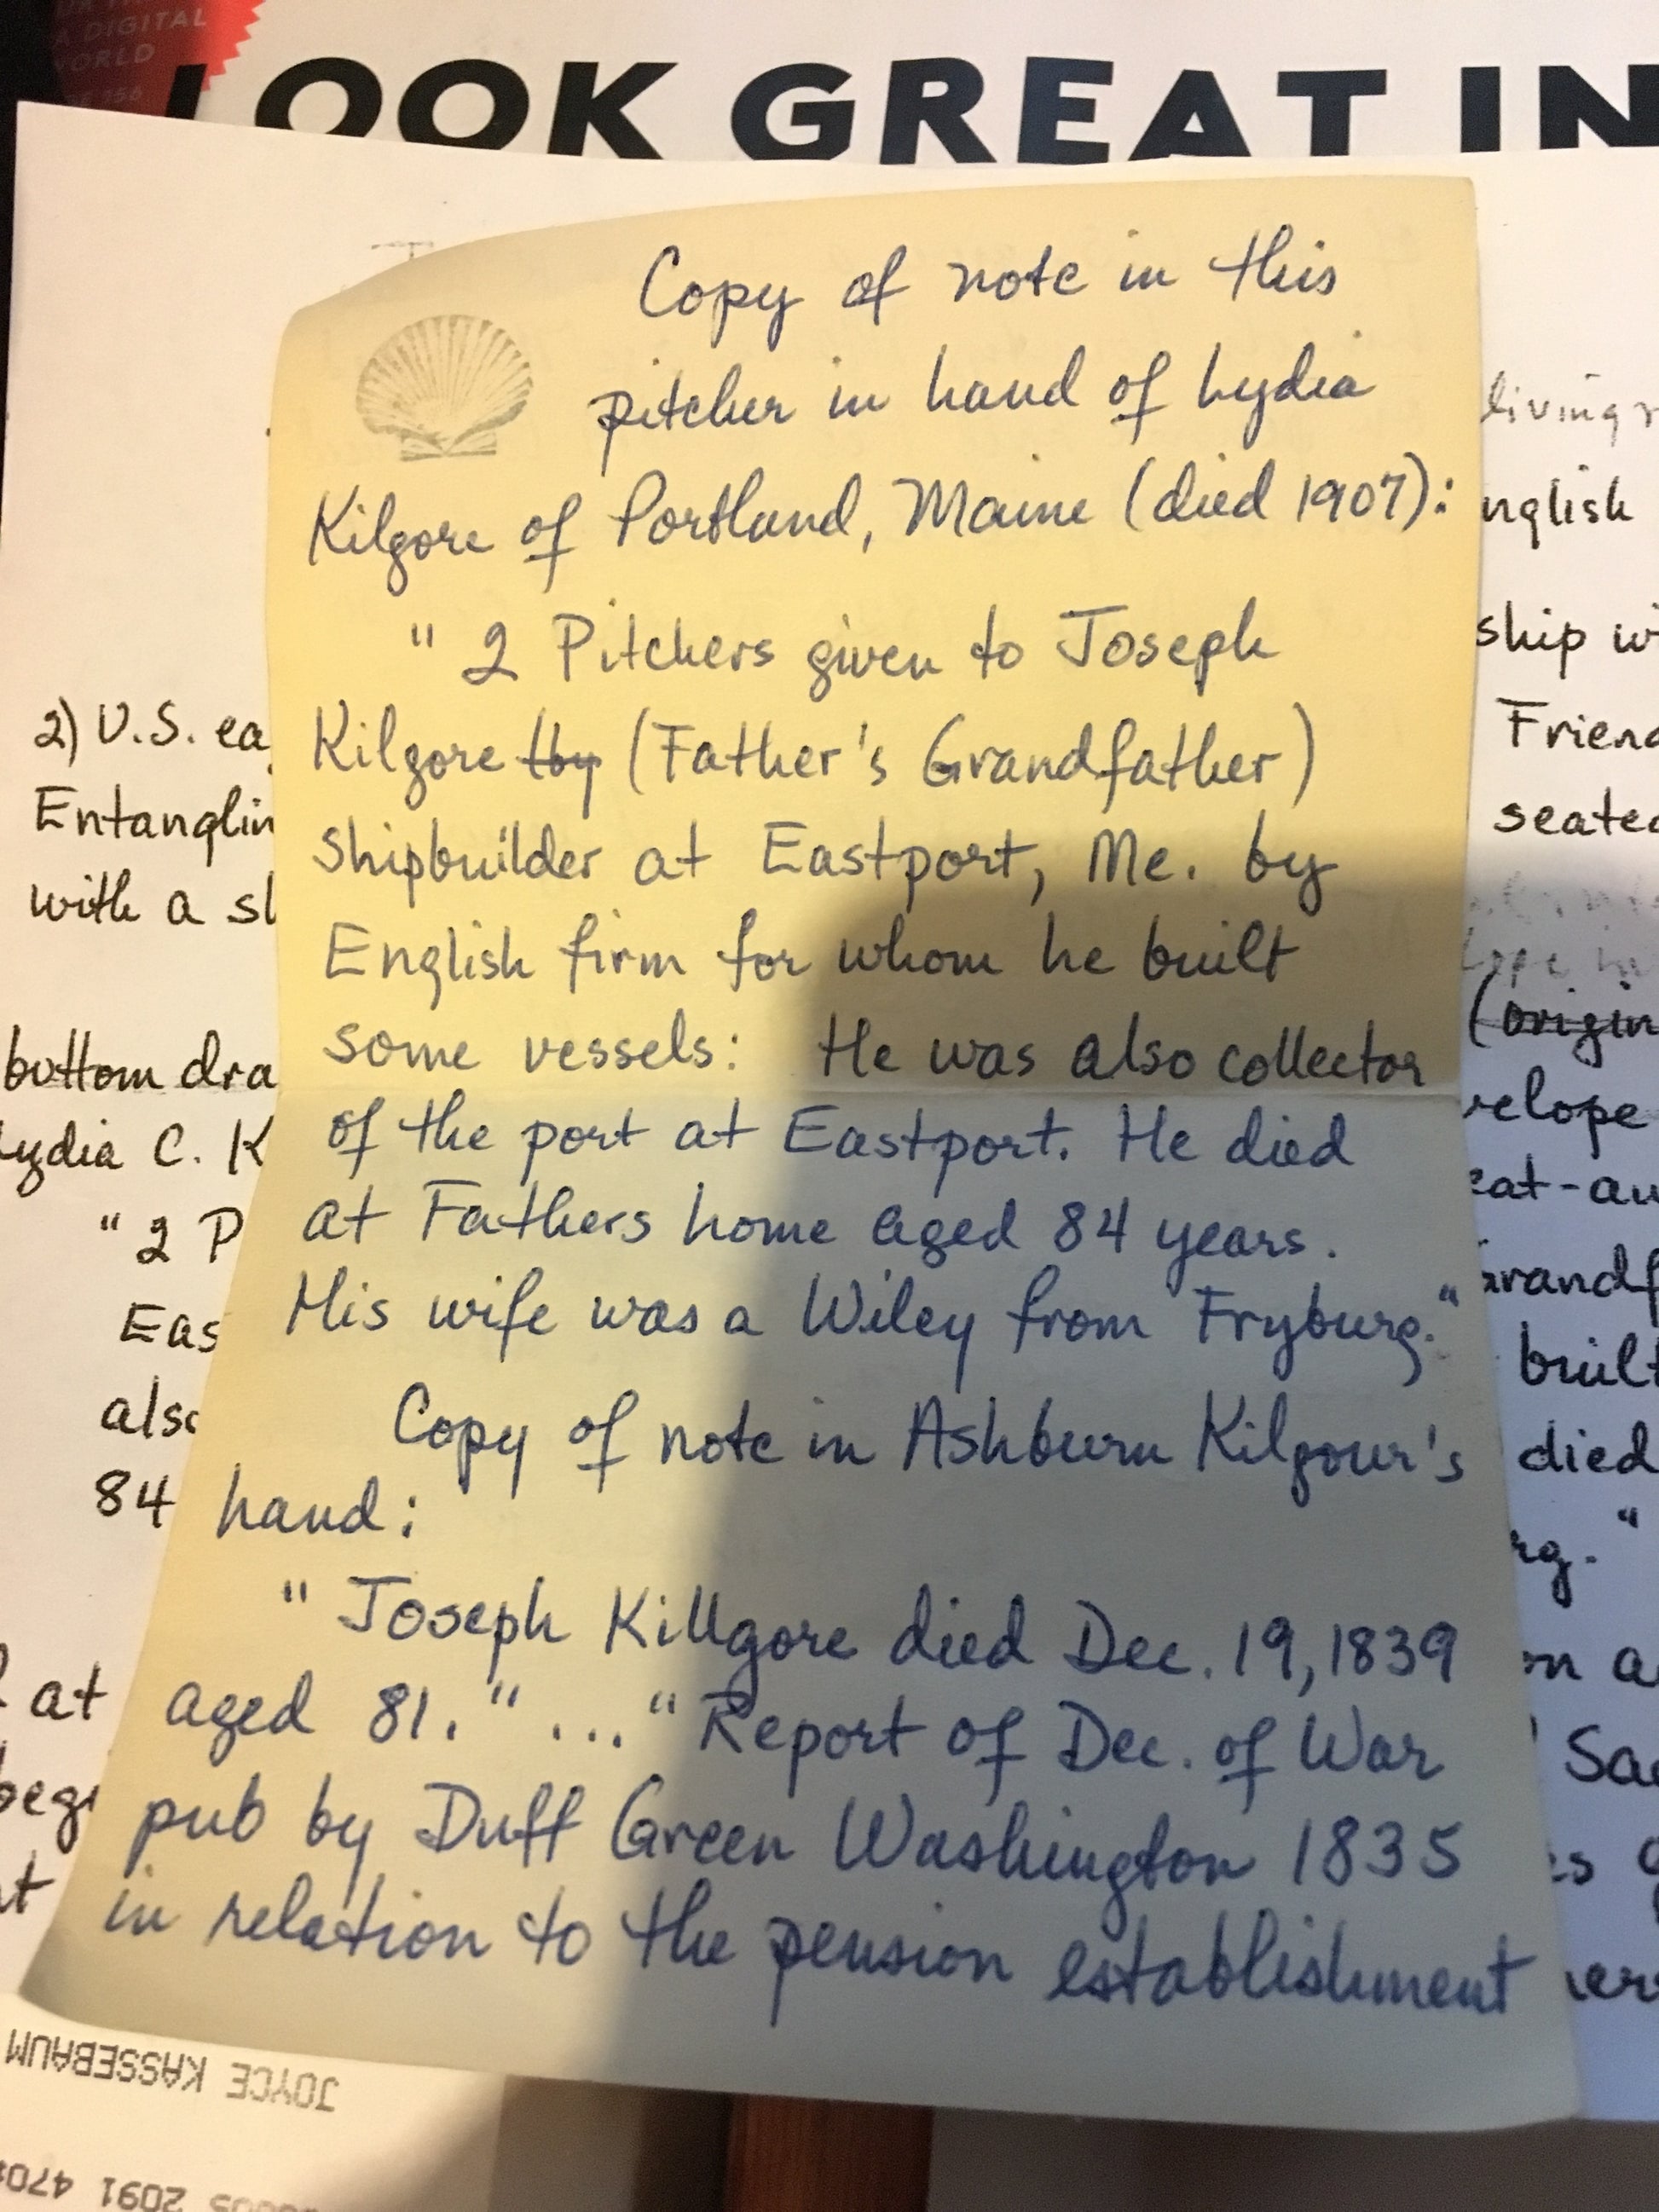 A DIGITAL
WORLD
LOOK GREAT IN
Copy of note in this
pitcher in hand of Lydia
Kilgore of Portland, Maine (died 1907):
" 2 Pitchers given to Joseph
Kilgore (Father's Grandfather)
shipbuilder at Eastport, Me. by
English firm for whom he built
some vessels: He was also collector
of the port at Eastport. He died
at Fathers home aged 84 years.
His wife was a Wiley from Fryburg."
Copy of note in Ashburn Kilgour's
hand:
" Joseph Killgore died Dec. 19, 1839
aged 81." ... "Report of Dec. of War
pub by Duff Green Washington 1835
in relation to the pension establishment
2) U.S. ea
Entanglin
with a sh
bottom dra
Lydia C. K
" 2 P
Eas
also
84
at
begi
living r
nglish
ship wi
Friend
seated
(origin
velope
eat-au
Grandf
built
died
rg."
on a
Sac
JOYCE KASSEBAUM
2091 470